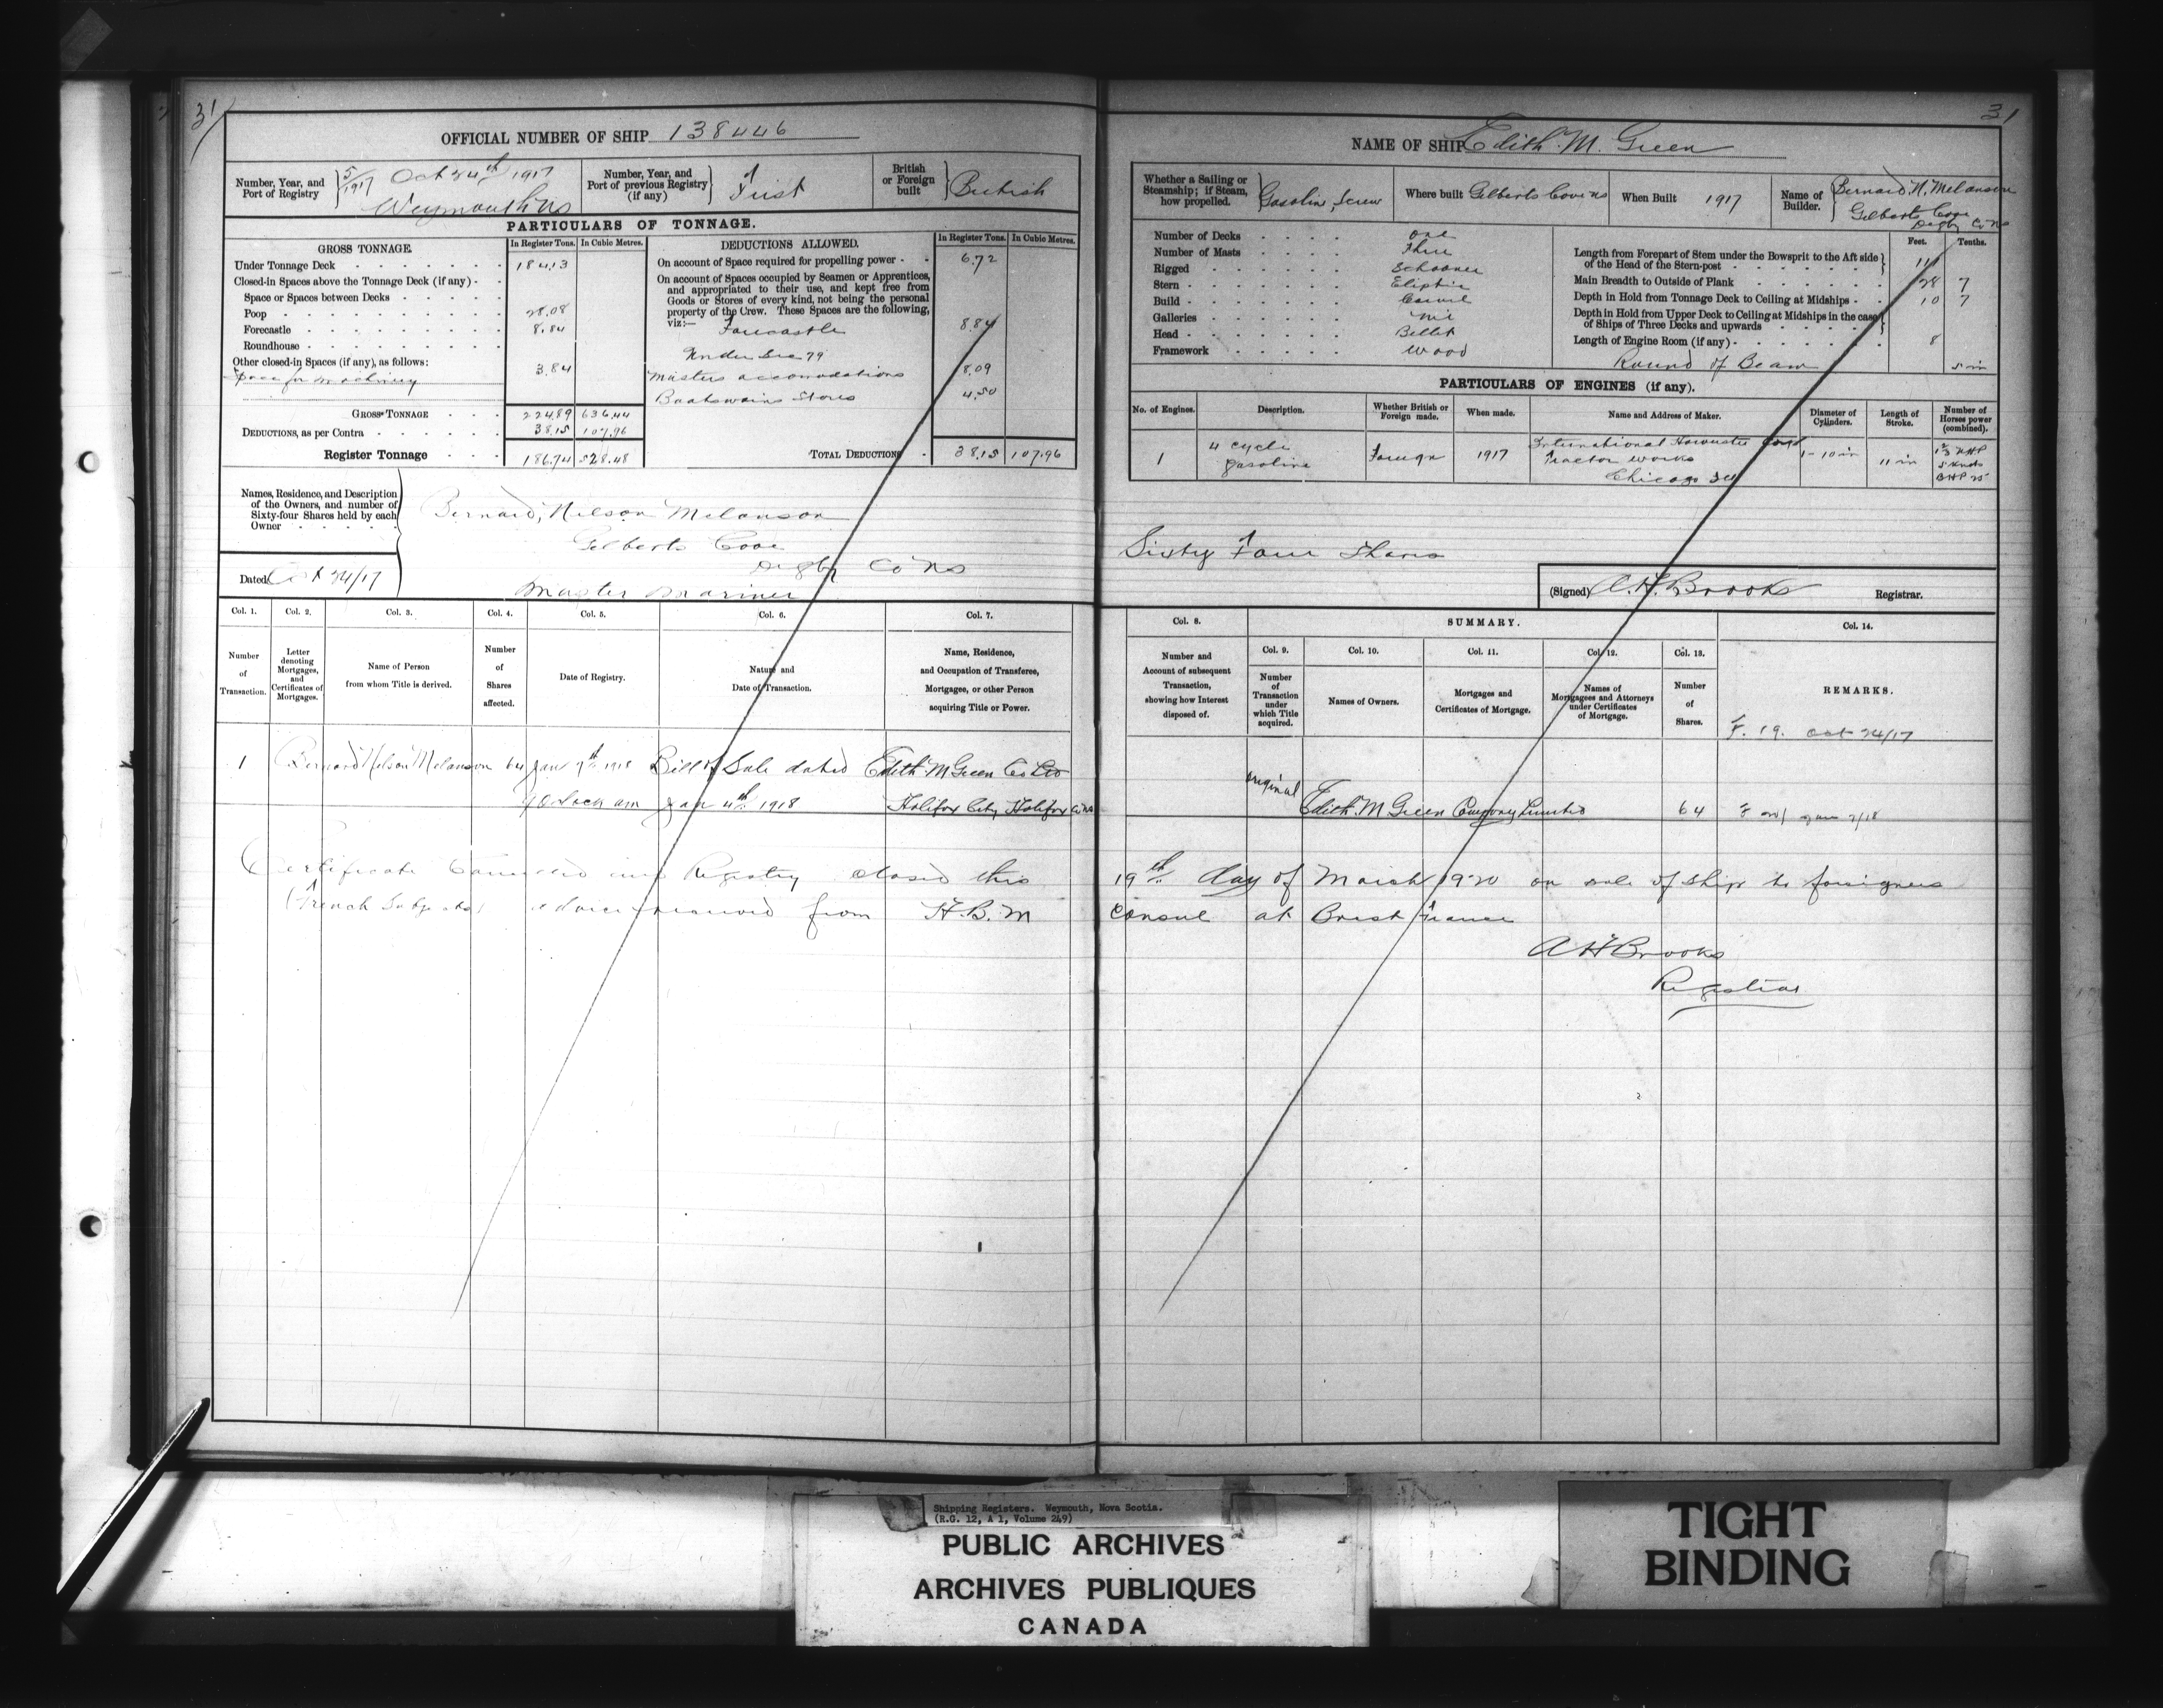 31
OFFICIAL NUMBER OF SHIP 138446
Number, Year, and Port of Registry 5/1917 Oct 24th 1917 Weymouth NS
Number, Year, and Port of previous Registry (if any) First
British or Foreign built British
PARTICULARS OF TONNAGE.
GROSS TONNAGE. In Register Tons. In Cubic Metres.
Under Tonnage Deck 184.13
Closed-in Spaces above the Tonnage Deck (if any)
Space or Spaces between Decks
Poop 28.08
Forecastle 8.84
Roundhouse
Other closed-in Spaces (if any), as follows:
Space for machinery 3.84
GROSS TONNAGE 224.89 636.44
DEDUCTIONS, as per Contra 38.15 107.96
Register Tonnage 186.74 528.48
DEDUCTIONS ALLOWED. In Register Tons. In Cubic Metres.
On account of Space required for propelling power 6.72
On account of Spaces occupied by Seamen or Apprentices,
and appropriated to their use, and kept free from
Goods or Stores of every kind, not being the personal
property of the Crew. These Spaces are the following,
viz:— Forecastle 8.84
Under Sec 79
Masters accomodations 8.09
Boatswains Stores 4.50
TOTAL DEDUCTIONS 38.15 107.96
Names, Residence, and Description
of the Owners, and number of
Sixty-four Shares held by each
Owner
Bernard, Nelson Melanson
Gilberts Cove
Digby Co NS
Master Mariner
Dated Oct 24/17
Col. 1. Col. 2. Col. 3. Col. 4. Col. 5. Col. 6. Col. 7.
Number of Transaction.
Letter denoting Mortgages, and Certificates of Mortgages.
Name of Person from whom Title is derived.
Number of Shares affected.
Date of Registry.
Nature and Date of Transaction.
Name, Residence, and Occupation of Transferee, Mortgagee, or other Person acquiring Title or Power.
1 Bernard Nelson Melanson 64 Jan 9th 1918 Bill of Sale dated Edith M Green Co Ltd
9 Oclock am Jan 4th 1918 Halifax City Halifax Co NS
Certificate Cancelled and Registry closed this
(French Subjects) advice received from H.B.M
31
NAME OF SHIP Edith M. Green
Whether a Sailing or Steamship; if Steam, how propelled. Gasoline Screw
Where built Gilberts Cove NS
When Built 1917
Name of Builder. Bernard N. Melanson
Gilberts Cove
Digby Co NS
Number of Decks One
Number of Masts Three
Rigged Schooner
Stern Eliptic
Build Carvel
Galleries Nil
Head Billet
Framework Wood
Feet. Tenths.
Length from Forepart of Stem under the Bowsprit to the Aft side
of the Head of the Stern-post 111
Main Breadth to Outside of Plank 28 7
Depth in Hold from Tonnage Deck to Ceiling at Midships 10 7
Depth in Hold from Upper Deck to Ceiling at Midships in the case
of Ships of Three Decks and upwards
Length of Engine Room (if any) 8
Round of Beam 5 in
PARTICULARS OF ENGINES (if any).
No. of Engines. Description. Whether British or Foreign made. When made. Name and Address of Maker. Diameter of Cylinders. Length of Stroke. Number of Horses power (combined).
1 4 cycle gasoline Foreign 1917 International Harvester
Tractor Works
Chicago Ill
1-10 in 11 in
BHP 25
Sixty Four Shares
(Signed) A.H. Brooks Registrar.
Col. 8. SUMMARY. Col. 14.
Col. 9. Col. 10. Col. 11. Col. 12. Col. 13.
Number and Account of subsequent Transaction, showing how Interest disposed of.
Number of Transaction under which Title acquired.
Names of Owners.
Mortgages and Certificates of Mortgage.
Names of Mortgagees and Attorneys under Certificates of Mortgage.
Number of Shares.
REMARKS.
F. 19. Oct 24/17
original Edith M Green Company Limited 64
19th day of March 1920 on sale of ship to foreigners
Consul at Brest France
A H Brooks
Registrar
Shipping Registers. Weymouth, Nova Scotia.
(R.G. 12, A 1, Volume 249)
PUBLIC ARCHIVES
ARCHIVES PUBLIQUES
CANADA
TIGHT
BINDING